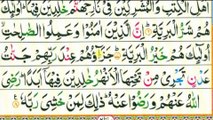 اَهْلِ الْكِتٰبِ وَ الْمُشْرِكِیْنَ فِیْ نَارِ جَهَنَّمَ خٰلِدِیْنَ فِیْهَا
اُولٰٓىِٕكَ هُمْ شَرُّ الْبَرِیَّةِ اِنَّ الَّذِیْنَ اٰمَنُوْا وَ عَمِلُوا الصّٰلِحٰتِ
اُولٰٓىِٕكَ هُمْ خَیْرُ الْبَرِیَّةِ جَزَآؤُهُمْ عِنْدَ رَبِّهِمْ جَنّٰتُ
عَدْنٍ تَجْرِیْ مِنْ تَحْتِهَا الْاَنْهٰرُ خٰلِدِیْنَ فِیْهَاۤ اَبَدًا رَضِیَ
اللّٰهُ عَنْهُمْ وَ رَضُوْا عَنْهُ ذٰلِكَ لِمَنْ خَشِیَ رَبَّهٗ